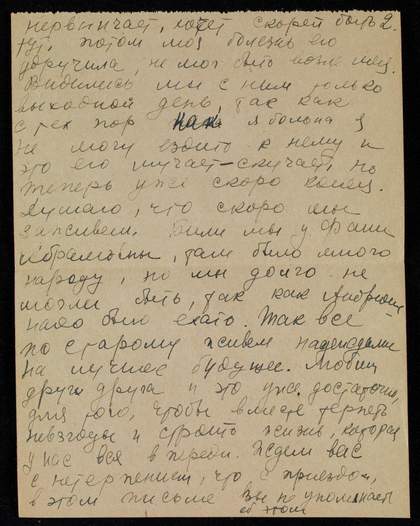 нервничает, хочет скорей быть 2.
тут. Потом моя болезнь его
удручила, не мог быть возле меня.
Виделись мы с ним только
выходной день, так как
с тех пор как я больна я
не могу ездить к нему и
это его мучает – скучает, но
теперь уже скоро конец.
Думаю, что скоро мы
заживем. Были мы у Фани
Абрамовны, там было много
народу, но мы долго не
могли быть, так как
надо было ехать. Так все
по старому живем надеждами
на лучшее будущее. Любим
друг друга и это уже достаточно,
для того, чтобы вместе терпеть
невзгоды и строить жизнь, которая
у нас вся в переди. Ждем вас
с нетерпением, что с приездом,
в этом письме вы не упоминаете
об этом